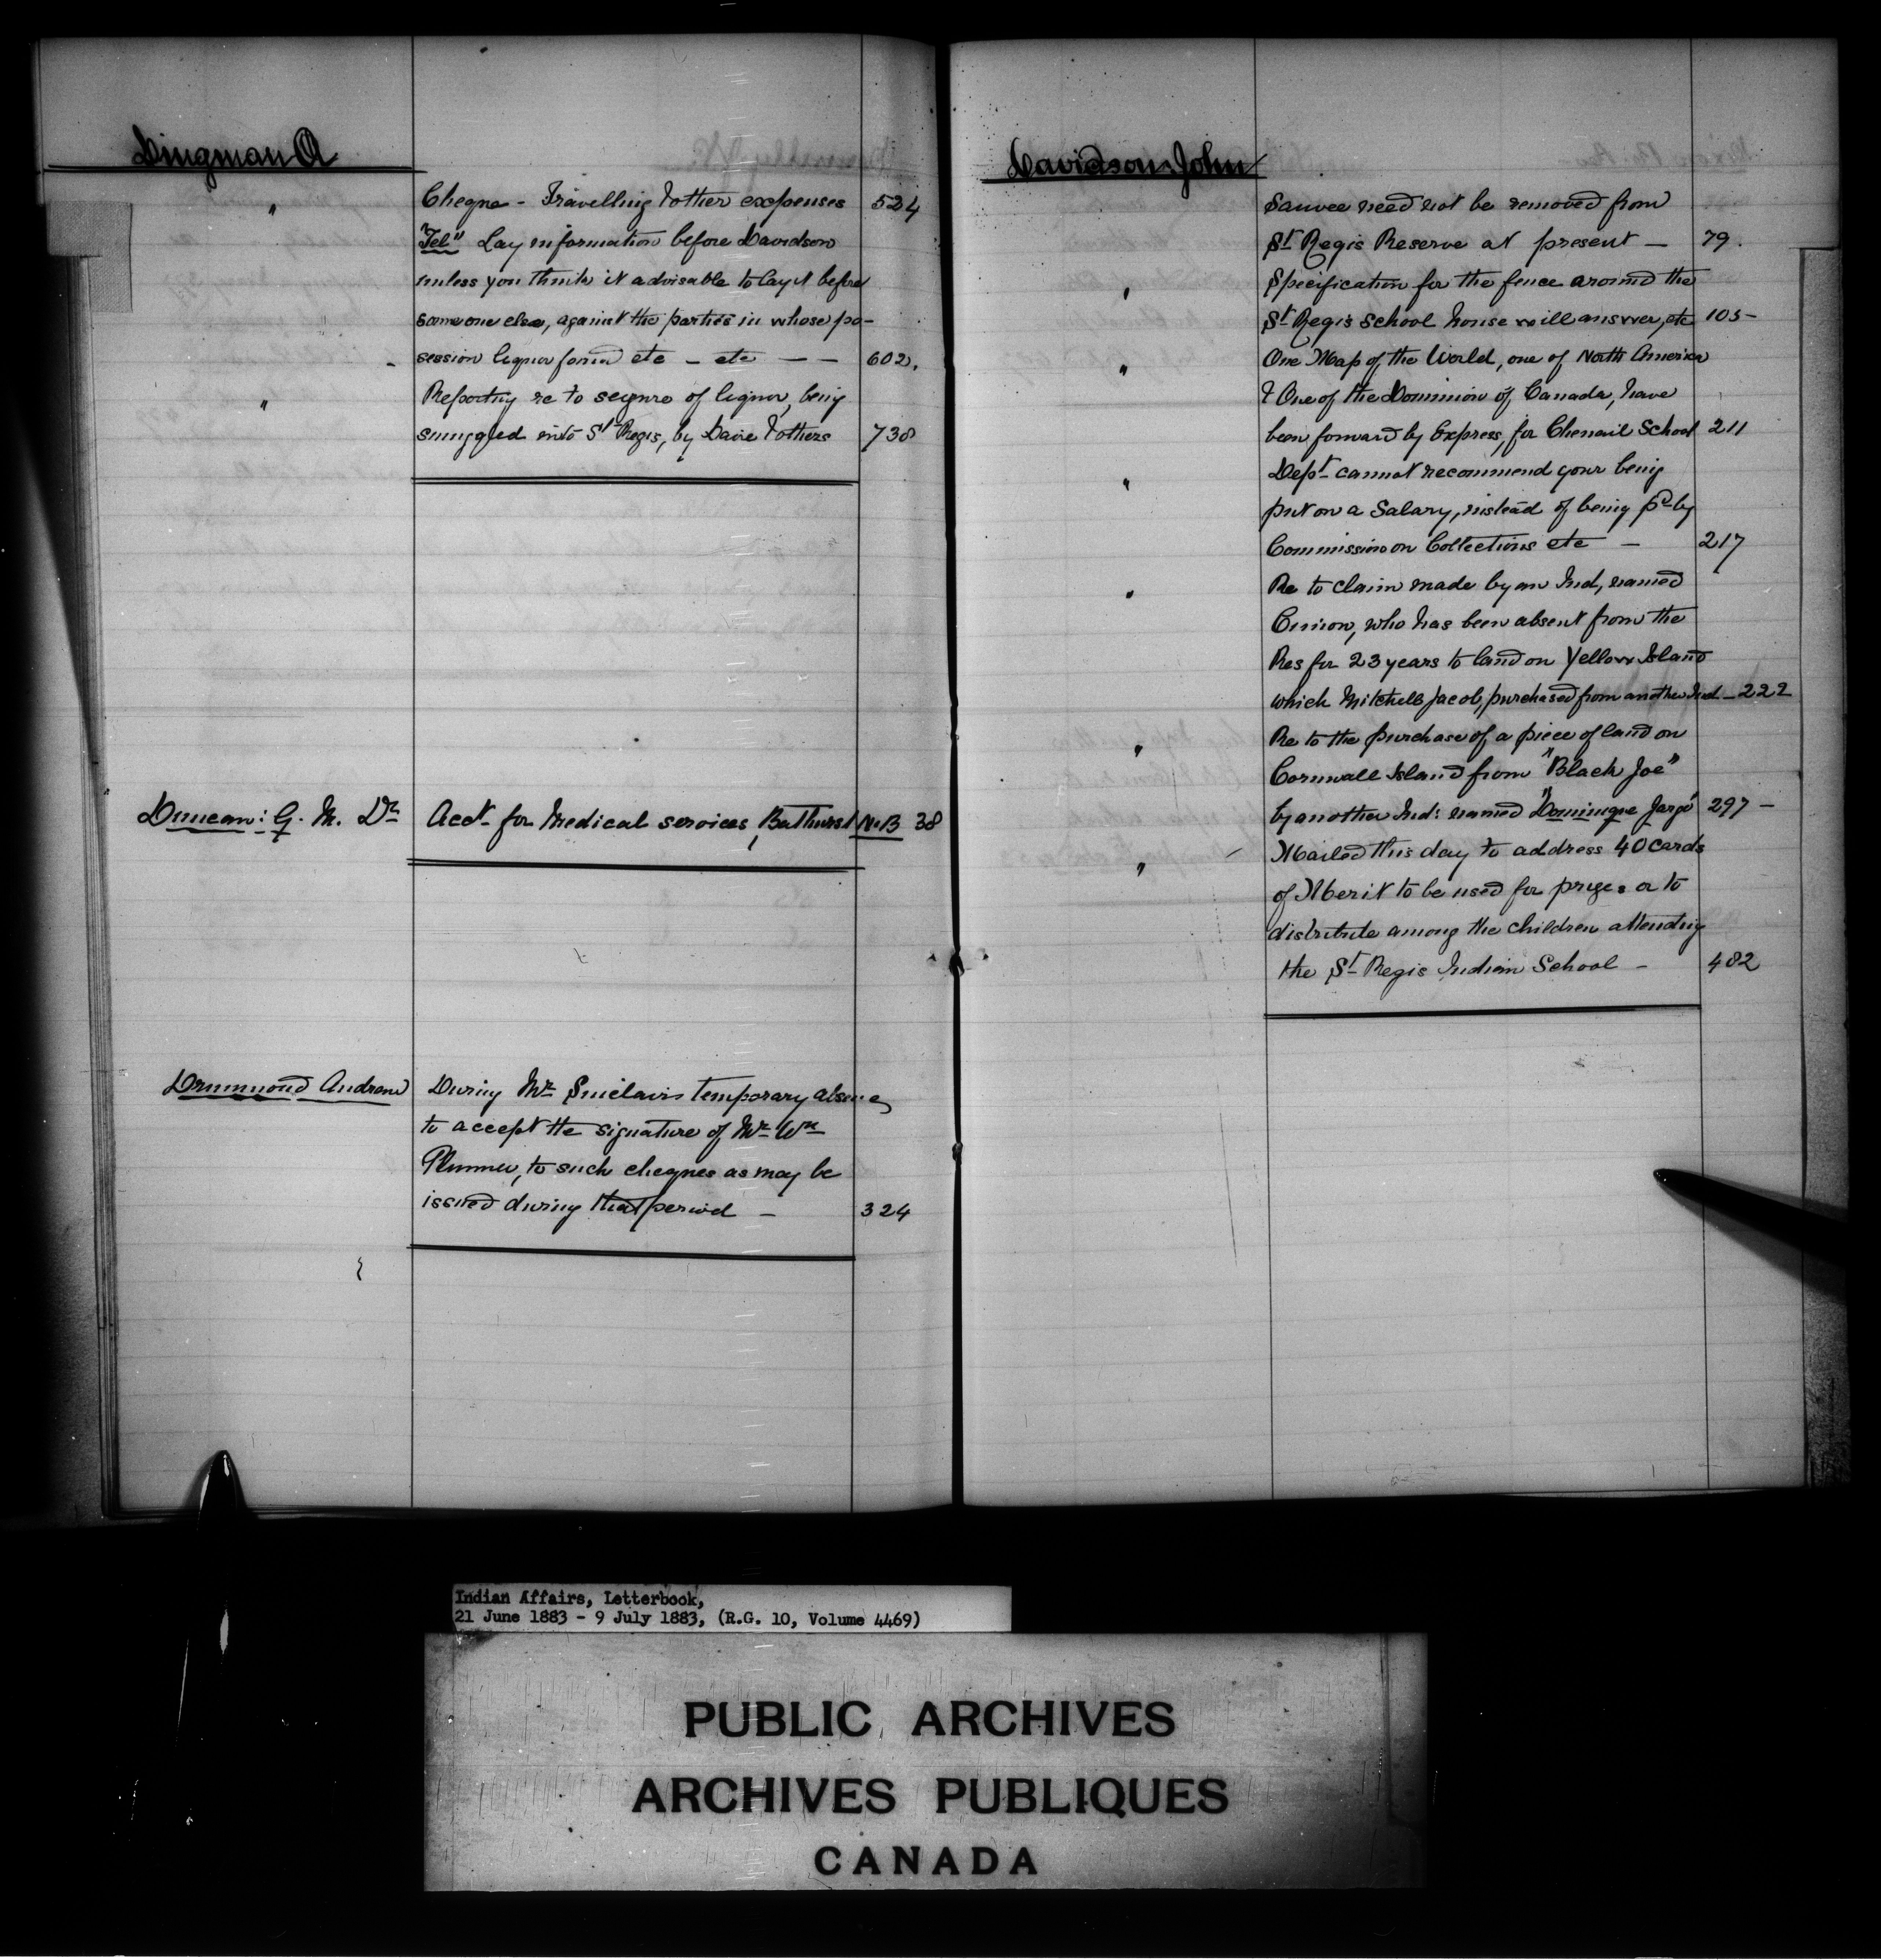 Dingman A
" Cheque - Travelling & other expenses 524
"Tel" Lay information before Davidson
unless you think it advisable to lay it before
someone else, against the parties in whose po-
session liquor found etc - etc - - 602.
" Reporting re to seizure of liquor, being
smuggled into St Regis, by Davie & others 738
Duncan: G. M. Dr Acct for Medical services, Bathurst N.B 38
Drummond Andrew During Mr Sinclairs temporary absence
to accept the signature of Mr Wm
Plummer, to such cheques as may be
issued during that period - 324
Davidson John
Sauvee need not be removed from
St Regis Reserve at present - 79.
" Specification for the fence around the
St Regis School house will answer, etc 105-
" One Map of the World, one of North America
& One of the Dominion of Canada, have
been forward by Express, for Chenail School 211
" Dept cannot recommend your being
put on a Salary, instead of being pd by
Commission on Collections etc - 217
" Re to claim made by an Ind, named
who has been absent from the
Res for 23 years to land on Yellow Island
which Mitchell Jacob, purchased from another Ind - 222
" Re to the purchase of a piece of land on
Cornwall Island from "Black Joe"
by another Ind: named "Dominique Jargo" 297 -
" Mailed this day to address 40 Cards
of Merit to be used for prizes or to
distribute among the children attending
the St Regis Indian School - 482
Indian Affairs, Letterbook,
21 June 1883 - 9 July 1883, (R.G. 10, Volume 4469)
PUBLIC ARCHIVES
ARCHIVES PUBLIQUES
CANADA